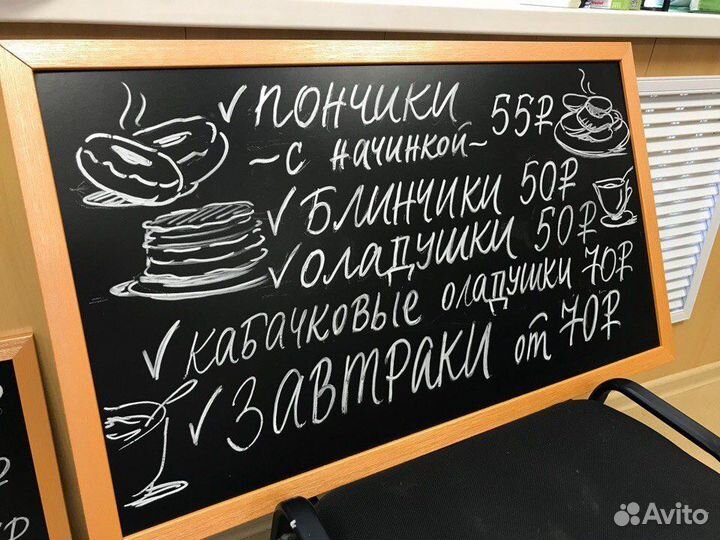 ✓ ПОНЧИКИ 55₽
~ с начинкой ~
✓ БЛИНЧИКИ 50₽
✓ ОЛАДУШКИ 50₽
✓ КАБАЧКОВЫЕ ОЛАДУШКИ 70₽
✓ ЗАВТРАКИ от 70₽
Avito